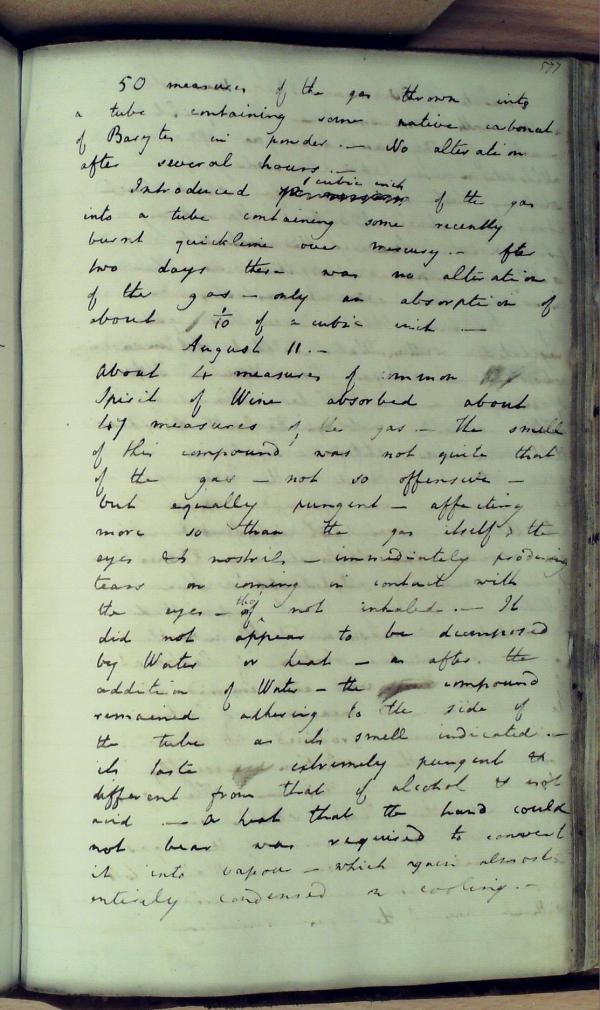 577
50 measures of the gas thrown into
a tube containing some native carbonat
of Barytes in powder. — No alteration
after several hours. —
Introduced 1 cubic inch of the gas
into a tube containing some recently
burnt quicklime over mercury. — After
two days there was no alteration
of the gas — only an absorption of
about 1/10 of a cubic inch —
August 11. —
About 4 measures of common
Spirit of Wine absorbed about
47 measures of the gas — The smell
of this compound was not quite that
of the gas — not so offensive —
but equally pungent — affecting
more so than the gas itself the
eyes & nostrils — immediately producing
tears on coming in contact with
the eyes — tho' not inhaled. — It
did not appear to be decomposed
by Water or heat — as after the
addition of Water — the compound
remained adhering to the side of
the tube as its smell indicated. —
its taste extremely pungent &
different from that of alcohol & not
acid — A heat that the hand could
not bear was required to convert
it into vapour — which again almost
entirely condensed on cooling. —